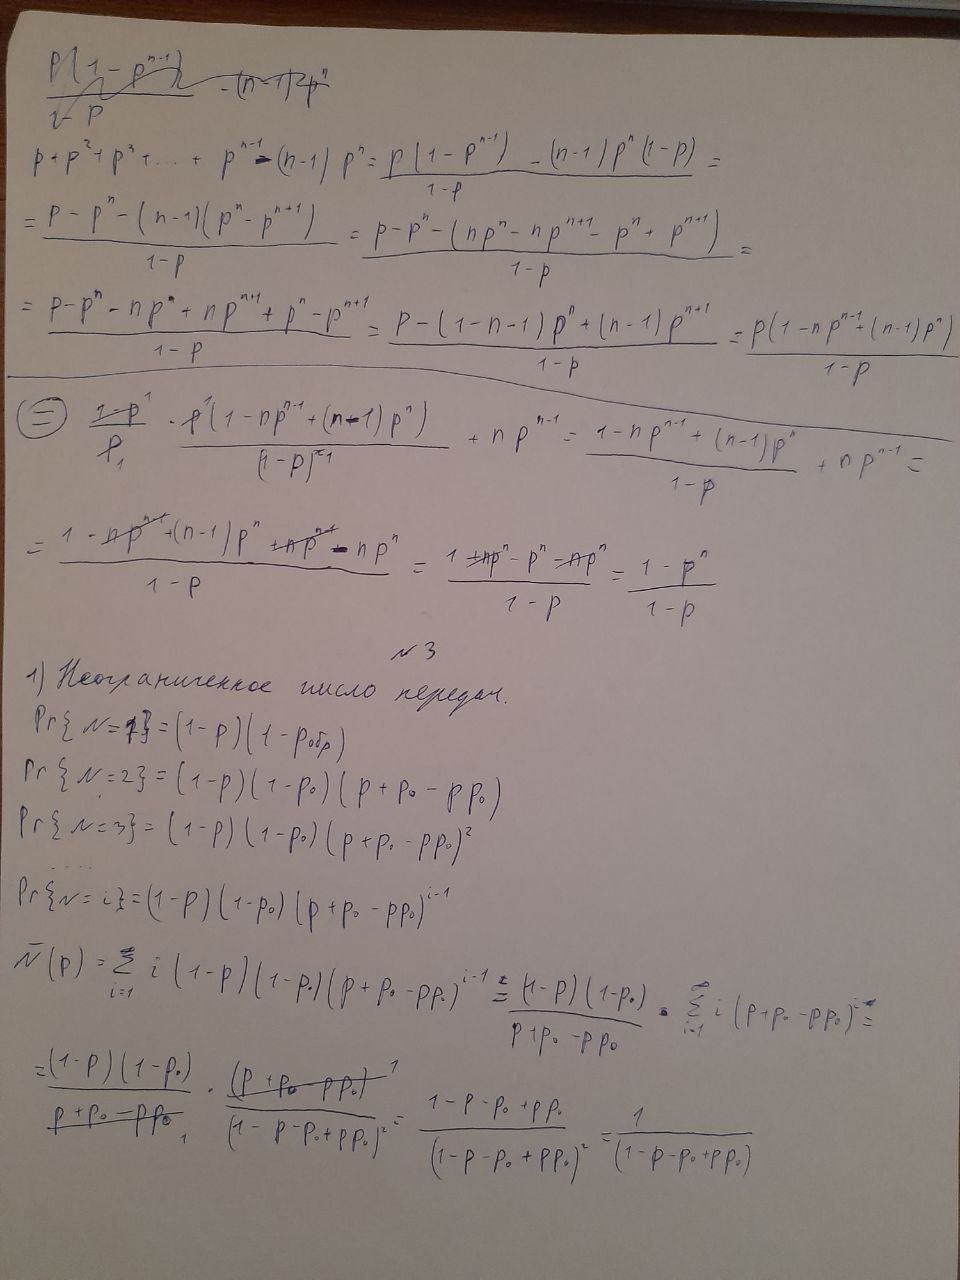 p + p² + p³ + ... + pⁿ⁻¹ - (n-1) pⁿ = (p(1-pⁿ⁻¹) - (n-1)pⁿ(1-p))/(1-p) =
= (p - pⁿ - (n-1)(pⁿ - pⁿ⁺¹))/(1-p) = (p - pⁿ - (npⁿ - npⁿ⁺¹ - pⁿ + pⁿ⁺¹))/(1-p) =
= (p - pⁿ - npⁿ + npⁿ⁺¹ + pⁿ - pⁿ⁺¹)/(1-p) = (p - (1-n-1)pⁿ + (n-1)pⁿ⁺¹)/(1-p) = p(1 - npⁿ⁻¹ + (n-1)pⁿ)/(1-p)
= (1-p)/p · p(1 - npⁿ⁻¹ + (n-1)pⁿ)/(1-p)² + npⁿ⁻¹ = (1 - npⁿ⁻¹ + (n-1)pⁿ)/(1-p) + npⁿ⁻¹ =
= (1 - npⁿ⁻¹ + (n-1)pⁿ + npⁿ⁻¹ - npⁿ)/(1-p) = (1 + npⁿ - pⁿ - npⁿ)/(1-p) = (1-pⁿ)/(1-p)
№3
1) Неограниченное число передач.
Pr{N=1} = (1-p)(1-pобр)
Pr{N=2} = (1-p)(1-p₀)(p+p₀-pp₀)
Pr{N=3} = (1-p)(1-p₀)(p+p₀-pp₀)²
....
Pr{N=i} = (1-p)(1-p₀)(p+p₀-pp₀)ⁱ⁻¹
N̄(p) = Σ_{i=1}^{∞} i(1-p)(1-p₀)(p+p₀-pp₀)ⁱ⁻¹ = (1-p)(1-p₀)/(p+p₀-pp₀) · Σ_{i=1}^{∞} i(p+p₀-pp₀)ⁱ =
= (1-p)(1-p₀)/(p+p₀-pp₀) · (p+p₀-pp₀)/(1-p-p₀+pp₀)² = (1-p-p₀+pp₀)/(1-p-p₀+pp₀)² = 1/(1-p-p₀+pp₀)